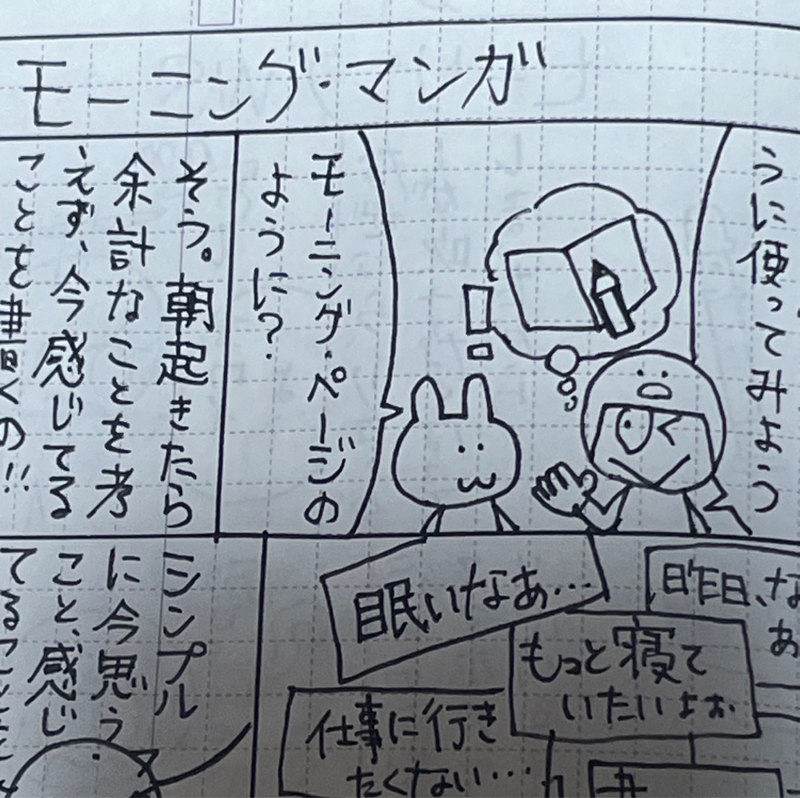 モーニング・マンガ
うに使ってみよう
モーニング・ページの
ように?
そう。朝起きたら
余計なことを考
えず、今感じてる
ことを書くの!!
眠いなぁ…
昨日、な
あ
もっと寝て
いたいよぉ
仕事に行き
たくない…
シンプル
に今思う
こと、感じ